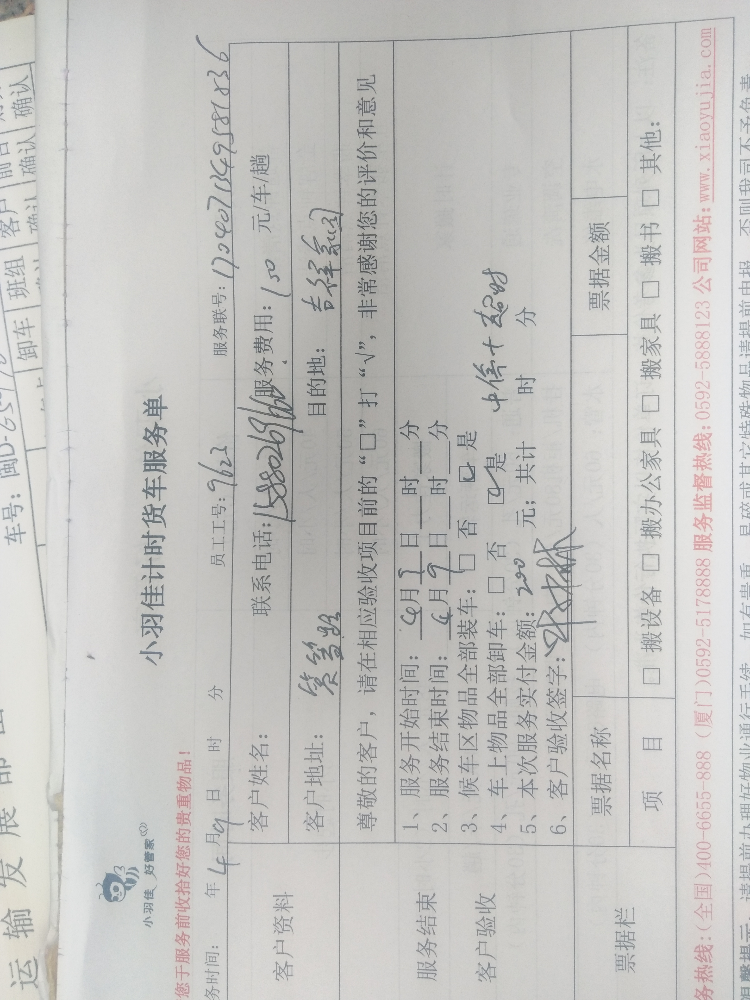 运输发展部出
车号：闽D·
卸车 班组 客户 前台
确认 确认 确认
小羽佳 好管家
小羽佳计时货车服务单
您于服务前收拾好您的贵重物品！
务时间： 年4月9日 时 分 员工工号：9/22 服务联号：
客户资料
客户姓名： 联系电话： 服务费用：100 元/车/趟
客户地址：筼筜路 目的地：吉祥家园
尊敬的客户，请在相应验收项目前的“□”打“√”，非常感谢您的评价和意见
服务结束
客户验收
1、服务开始时间： 4月 日 时 分
2、服务结束时间： 4月9日 时 分
3、候车区物品全部装车：□ 否 ☑ 是
4、车上物品全部卸车：□ 否 ☑ 是
5、本次服务实付金额：200 元；共计 时 分
6、客户验收签字：
票据栏
票据名称 票据金额
项 目 □ 搬设备 □ 搬办公家具 □ 搬家具 □ 搬书 □ 其他：
务热线：(全国)400-6655-888 (厦门)0592-5178888 服务监督热线：0592-5888123 公司网站：www.xiaoyujia.com